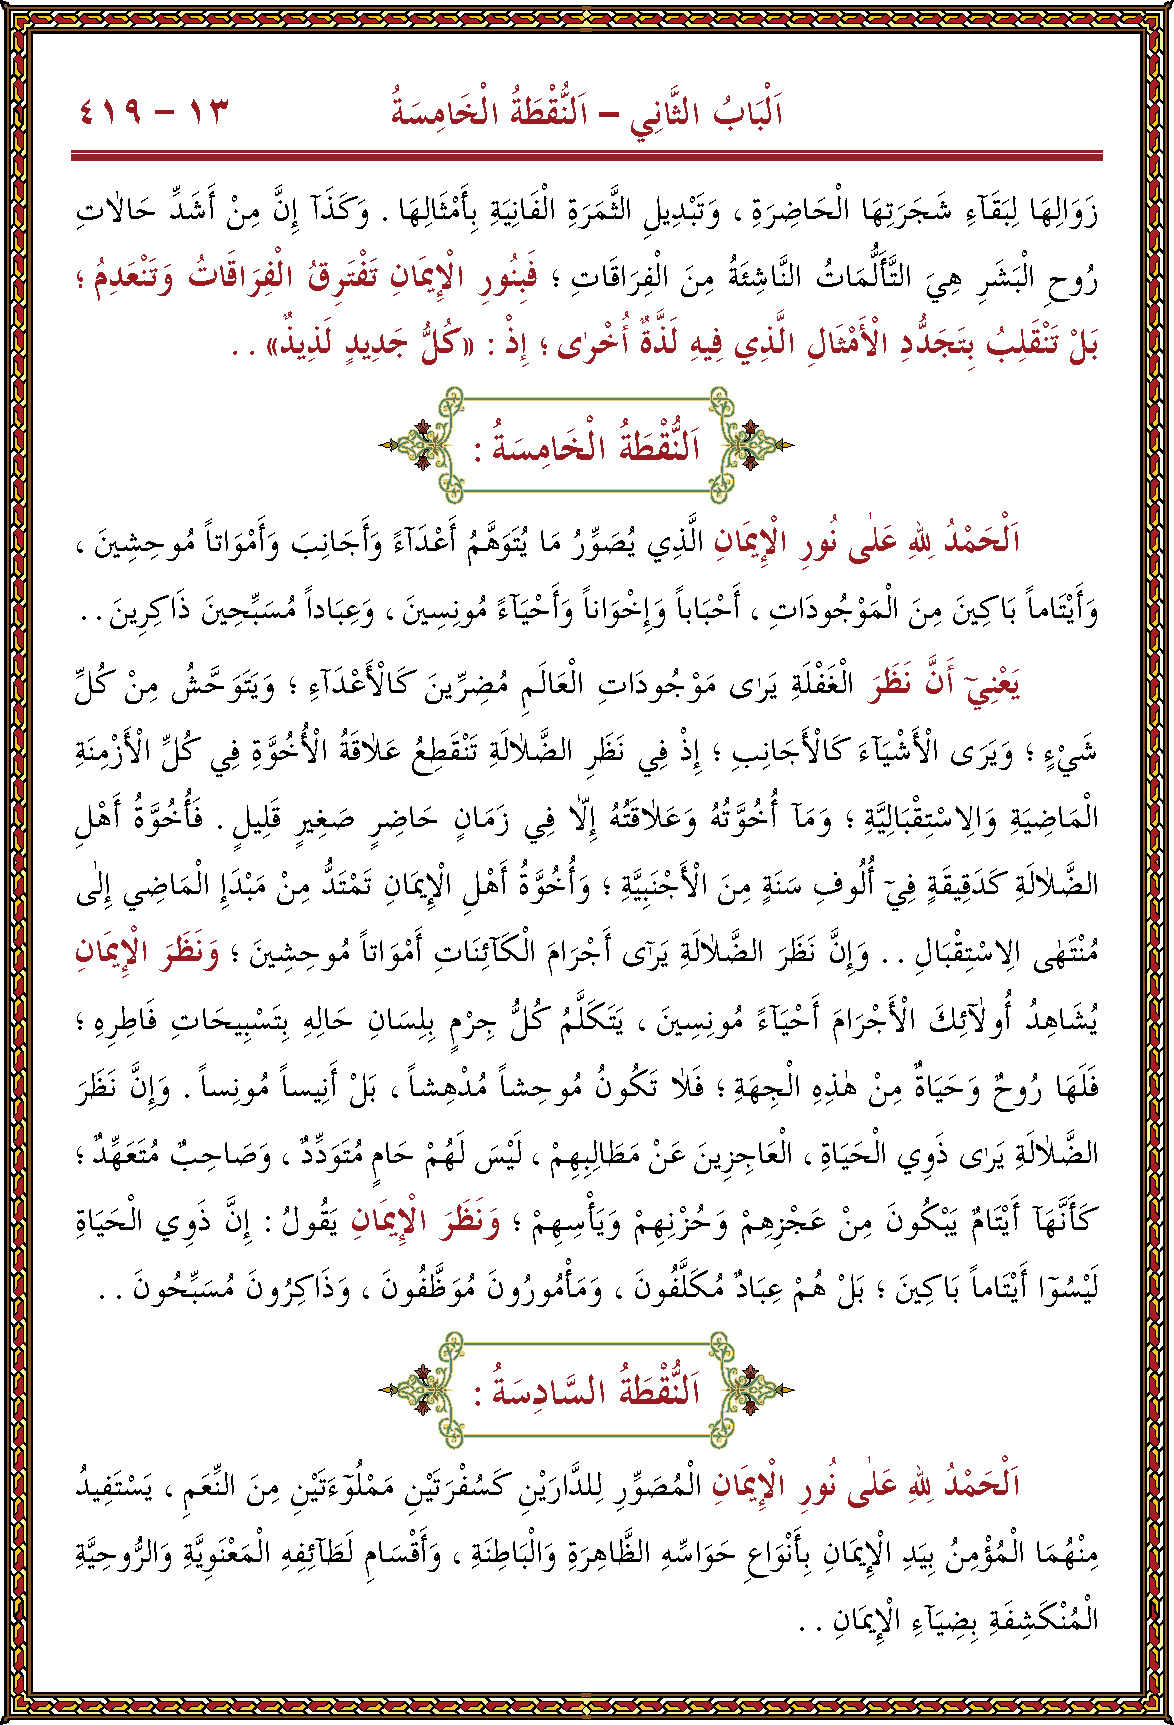 اَلْبَابُ الثَّانِي – اَلنُّقْطَةُ الْخَامِسَةُ ١٣ – ٤١٩
زَوَالِهَا لِبَقَآءِ شَجَرَتِهَا الْحَاضِرَةِ ، وَتَبْدِيلِ الثَّمَرَةِ الْفَانِيَةِ بِأَمْثَالِهَا . وَكَذَآ إِنَّ مِنْ أَشَدِّ حَالاٰتِ
رُوحِ الْبَشَرِ هِيَ التَّأَلُّمَاتُ النَّاشِئَةُ مِنَ الْفِرَاقَاتِ ؛ فَبِنُورِ الْإِيمَانِ تَفْتَرِقُ الْفِرَاقَاتُ وَتَنْعَدِمُ ؛
بَلْ تَنْقَلِبُ بِتَجَدُّدِ الْأَمْثَالِ الَّذِي فِيهِ لَذَّةٌ أُخْرٰى ؛ إِذْ : «كُلُّ جَدِيدٍ لَذِيذٌ» . .
اَلنُّقْطَةُ الْخَامِسَةُ :
اَلْحَمْدُ لِلّٰهِ عَلٰى نُورِ الْإِيمَانِ الَّذِي يُصَوِّرُ مَا يُتَوَهَّمُ أَعْدَآءً وَأَجَانِبَ وَأَمْوَاتاً مُوحِشِينَ ،
وَأَيْتَاماً بَاكِينَ مِنَ الْمَوْجُودَاتِ ، أَحْبَاباً وَإِخْوَاناً وَأَحْيَآءً مُونِسِينَ ، وَعِبَاداً مُسَبِّحِينَ ذَاكِرِينَ . .
يَعْنِيٓ أَنَّ نَظَرَ الْغَفْلَةِ يَرٰى مَوْجُودَاتِ الْعَالَمِ مُضِرِّينَ كَالْأَعْدَآءِ ؛ وَيَتَوَحَّشُ مِنْ كُلِّ
شَيْءٍ ؛ وَيَرَى الْأَشْيَآءَ كَالْأَجَانِبِ ؛ إِذْ فِي نَظَرِ الضَّلاٰلَةِ تَنْقَطِعُ عَلاٰقَةُ الْأُخُوَّةِ فِي كُلِّ الْأَزْمِنَةِ
الْمَاضِيَةِ وَالِاسْتِقْبَالِيَّةِ ؛ وَمَآ أُخُوَّتُهُ وَعَلاٰقَتُهُ إِلاّٰ فِي زَمَانٍ حَاضِرٍ صَغِيرٍ قَلِيلٍ . فَأُخُوَّةُ أَهْلِ
الضَّلاٰلَةِ كَدَقِيقَةٍ فِيٓ أُلُوفِ سَنَةٍ مِنَ الْأَجْنَبِيَّةِ ؛ وَأُخُوَّةُ أَهْلِ الْإِيمَانِ تَمْتَدُّ مِنْ مَبْدَإِ الْمَاضِي إِلٰى
مُنْتَهَى الِاسْتِقْبَالِ . . وَإِنَّ نَظَرَ الضَّلاٰلَةِ يَرٰٓى أَجْرَامَ الْكَآئِنَاتِ أَمْوَاتاً مُوحِشِينَ ؛ وَنَظَرَ الْإِيمَانِ
يُشَاهِدُ أُولٰٓئِكَ الْأَجْرَامَ أَحْيَآءً مُونِسِينَ ، يَتَكَلَّمُ كُلُّ جِرْمٍ بِلِسَانِ حَالِهِ بِتَسْبِيحَاتِ فَاطِرِهِ ؛
فَلَهَا رُوحٌ وَحَيَاةٌ مِنْ هٰذِهِ الْجِهَةِ ؛ فَلاٰ تَكُونُ مُوحِشاً مُدْهِشاً ، بَلْ أَنِيساً مُونِساً . وَإِنَّ نَظَرَ
الضَّلاٰلَةِ يَرٰى ذَوِي الْحَيَاةِ ، الْعَاجِزِينَ عَنْ مَطَالِبِهِمْ ، لَيْسَ لَهُمْ حَامٍ مُتَوَدِّدٌ ، وَصَاحِبٌ مُتَعَهِّدٌ ؛
كَأَنَّهَآ أَيْتَامٌ يَبْكُونَ مِنْ عَجْزِهِمْ وَحُزْنِهِمْ وَيَأْسِهِمْ ؛ وَنَظَرَ الْإِيمَانِ يَقُولُ : إِنَّ ذَوِي الْحَيَاةِ
لَيْسُوٓا أَيْتَاماً بَاكِينَ ؛ بَلْ هُمْ عِبَادٌ مُكَلَّفُونَ ، وَمَأْمُورُونَ مُوَظَّفُونَ ، وَذَاكِرُونَ مُسَبِّحُونَ . .
اَلنُّقْطَةُ السَّادِسَةُ :
اَلْحَمْدُ لِلّٰهِ عَلٰى نُورِ الْإِيمَانِ الْمُصَوِّرِ لِلدَّارَيْنِ كَسُفْرَتَيْنِ مَمْلُوٓءَتَيْنِ مِنَ النِّعَمِ ، يَسْتَفِيدُ
مِنْهُمَا الْمُؤْمِنُ بِيَدِ الْإِيمَانِ بِأَنْوَاعِ حَوَاسِّهِ الظَّاهِرَةِ وَالْبَاطِنَةِ ، وَأَقْسَامِ لَطَآئِفِهِ الْمَعْنَوِيَّةِ وَالرُّوحِيَّةِ
الْمُنْكَشِفَةِ بِضِيَآءِ الْإِيمَانِ . .